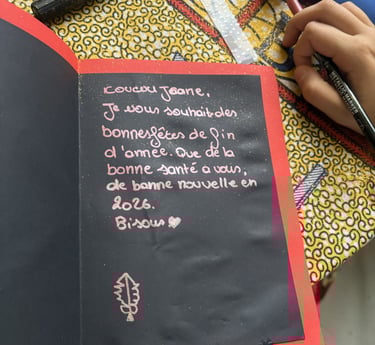 coucou Jeane,
Je vous souhait des
bonnes fêtes de fin
d'année. Que de la
bonne santé à vous,
de bonne nouvelle en
2026.
Bisous